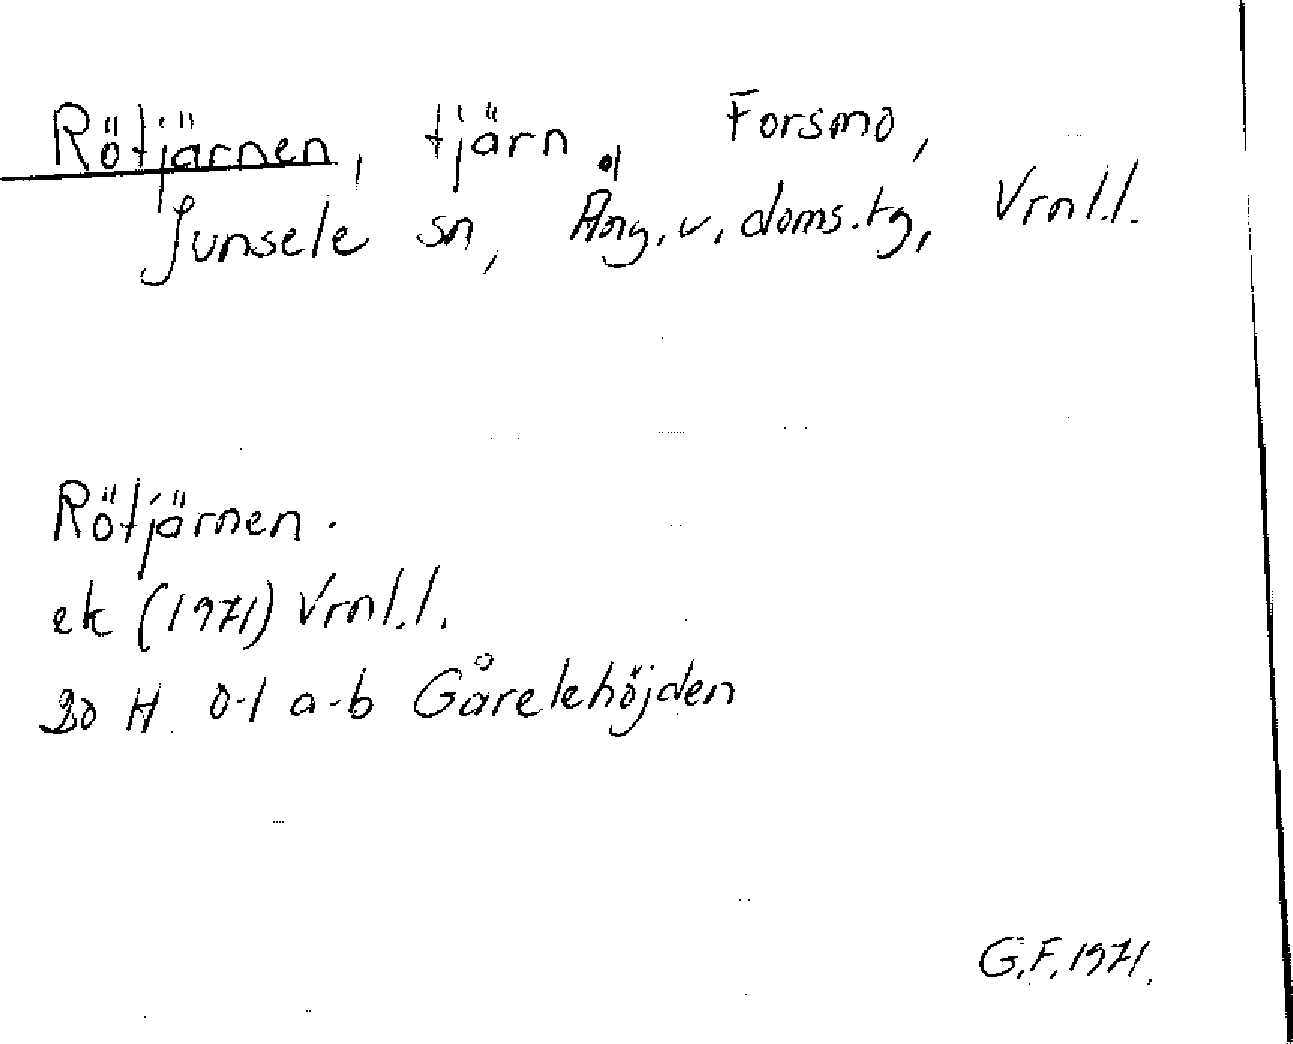 Rötjärnen, tjärn, Forsmo,
Junsele sn, Ång.v.doms.tg, Vrnl.l.
Rötjärnen.
ek (1971) Vrnl.l.
20 H 0-1 a-b Gårelehöjden
G.F. 1971.